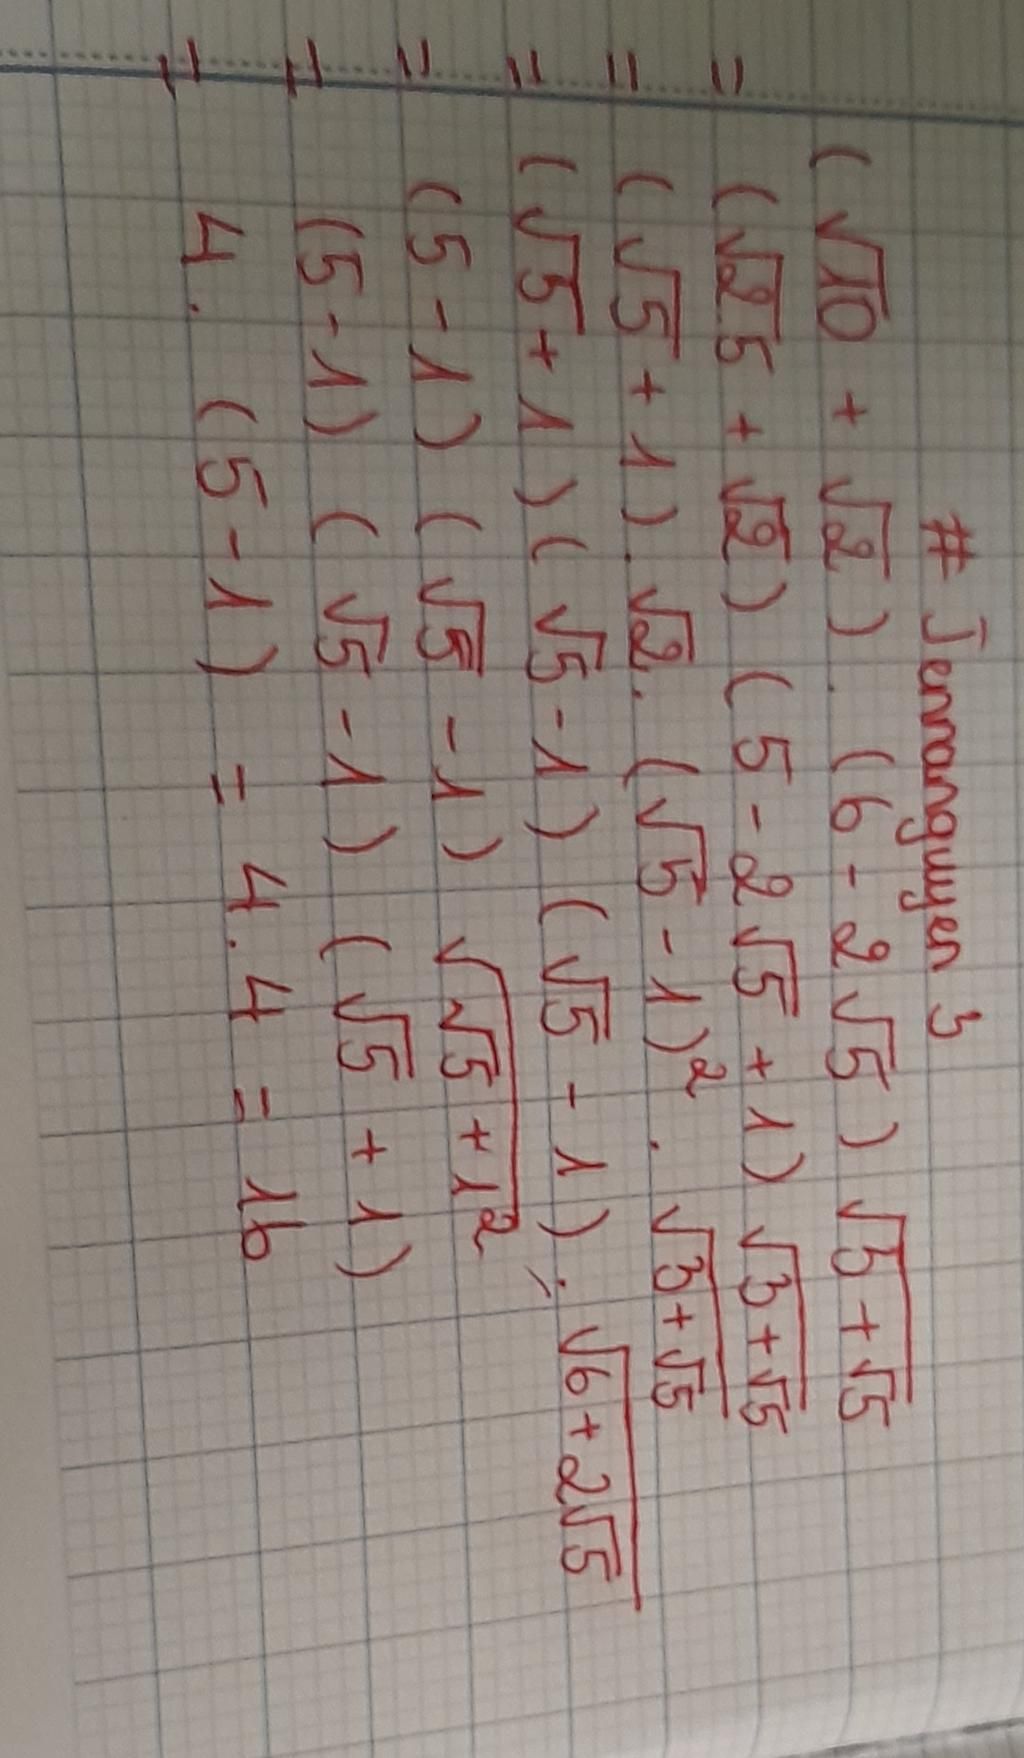 # Jennanguyen 3
(√10 + √2). (6 - 2√5) √3+√5
= (√2.5 + √2) (5 - 2√5 + 1) √3+√5
= (√5 + 1). √2. (√5 - 1)². √3+√5
= (√5 + 1) (√5 - 1) (√5 - 1). √6+2√5
= (5 - 1) (√5 - 1) √√5+1²
= (5 - 1) (√5 - 1) (√5 + 1)
= 4. (5 - 1) = 4.4 = 16